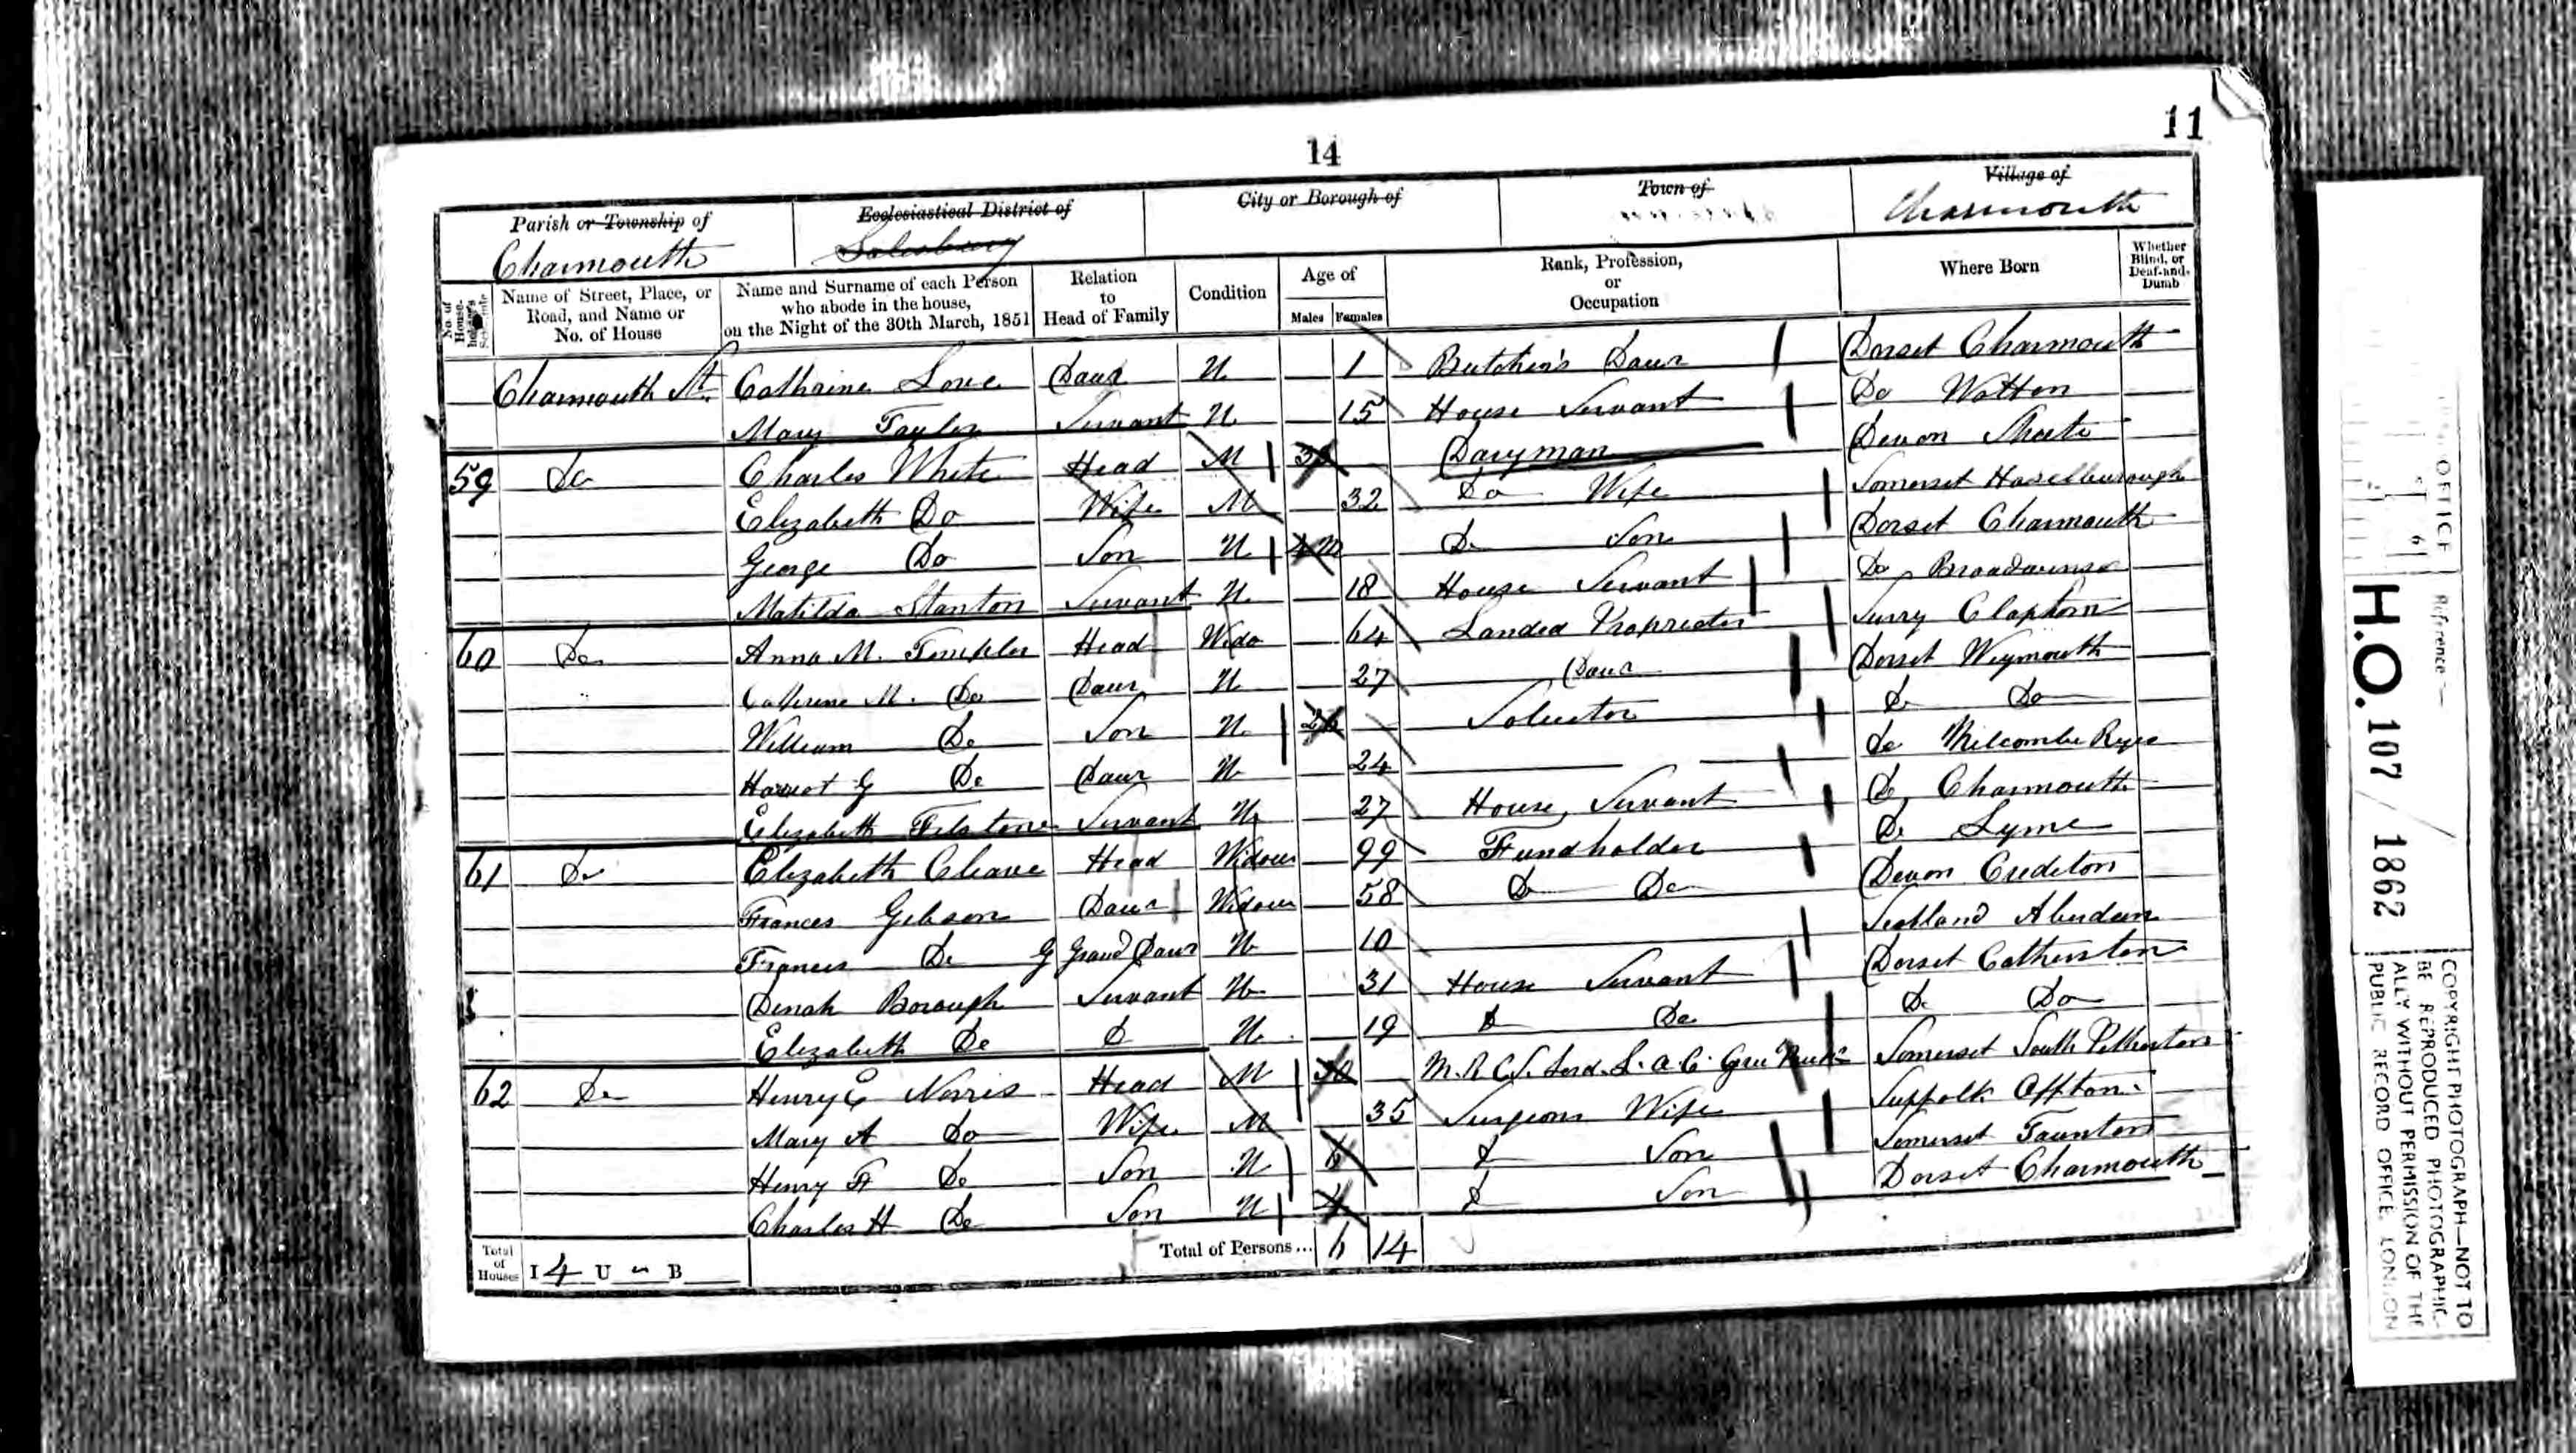 11
14
Parish or Township of
Charmouth
Ecclesiastical District of
Salesbury
City or Borough of
Town of
Village of
Charmouth
No. of House-holder's Schedule
Name of Street, Place, or Road, and Name or No. of House
Name and Surname of each Person who abode in the house, on the Night of the 30th March, 1851
Relation to Head of Family
Condition
Age of
Males Females
Rank, Profession, or Occupation
Where Born
Whether Blind, or Deaf-and-Dumb
Charmouth St. Cathaine Love Daur U 1 Butcher's Daur Dorset Charmouth
Mary Taylor Servant U 15 House Servant Do Wotton
59 Do Charles White Head M Daryman Devon Shute
Elizabeth Do Wife M 32 Do Wife Somerset Haselburough
George Do Son U Do Son Dorset Charmouth
Matilda Stanton Servant U 18 House Servant Do Broadwinsor
60 Do Anna M. Templer Head Wido 64 Landed Proprietor Surry Clapham
Catherine M. Do Daur U 27 Daur Dorset Weymouth
William Do Son U 26 Solicitor Do Do
Harriot G Do Daur U 24 Do Milcombe Regis
Elizabeth Felstone Servant U 27 House Servant Do Charmouth
61 Do Elizabeth Cleave Head Widow 99 Fundholder Do Lyme
Frances Gibson Daur Widow 58 Do Do Devon Crediton
Frances Do G Grand Daur U 10 Scotland Aberdeen
Dinah Borough Servant U 31 House Servant Dorset Catherston
Elizabeth Do D U 19 Do Do Do Do
62 Do Henry E Norris Head M 30 M.R.C.S. Lond. L.A.C. Somerset South Petherton
Mary A Do Wife M 35 Surgeons Wife Suffolk Offton
Henry F Do Son U 6 Do Son Somerset Taunton
Charles H Do Son U Do Son Dorset Charmouth
Total of Houses I 4 U B
Total of Persons... 6 14
OFFICE
Reference
H.O. 107 / 1862
COPYRIGHT PHOTOGRAPH—NOT TO
BE REPRODUCED PHOTOGRAPHIC-
ALLY WITHOUT PERMISSION OF THE
PUBLIC RECORD OFFICE, LONDON